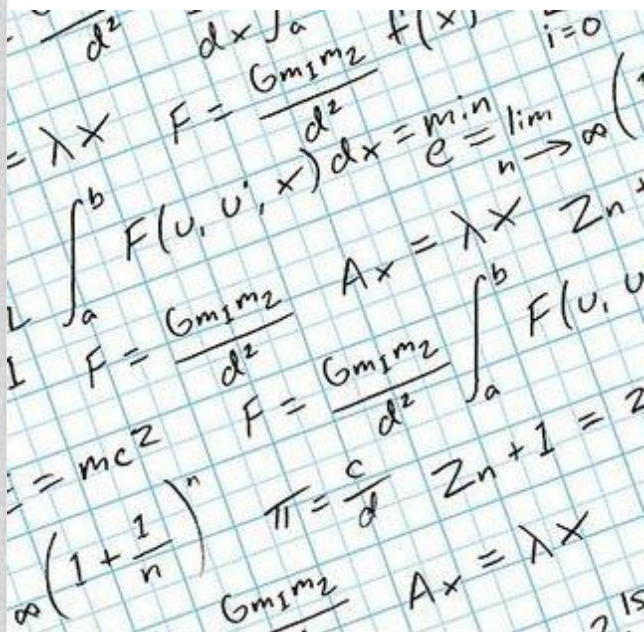 d²
dx ∫a f(x)
i=0
= λx
F = Gm₁m₂/d²
∫a^b F(u, u', x) dx = min
e = lim n→∞ (
Ax = λx
Zn +
F = Gm₁m₂/d²
F = Gm₁m₂/d²
∫a^b F(u, u
= mc2
∞ (1 + 1/n)^n
π = c/d
Zn+1 = Z
Gm₁m₂
Ax = λx